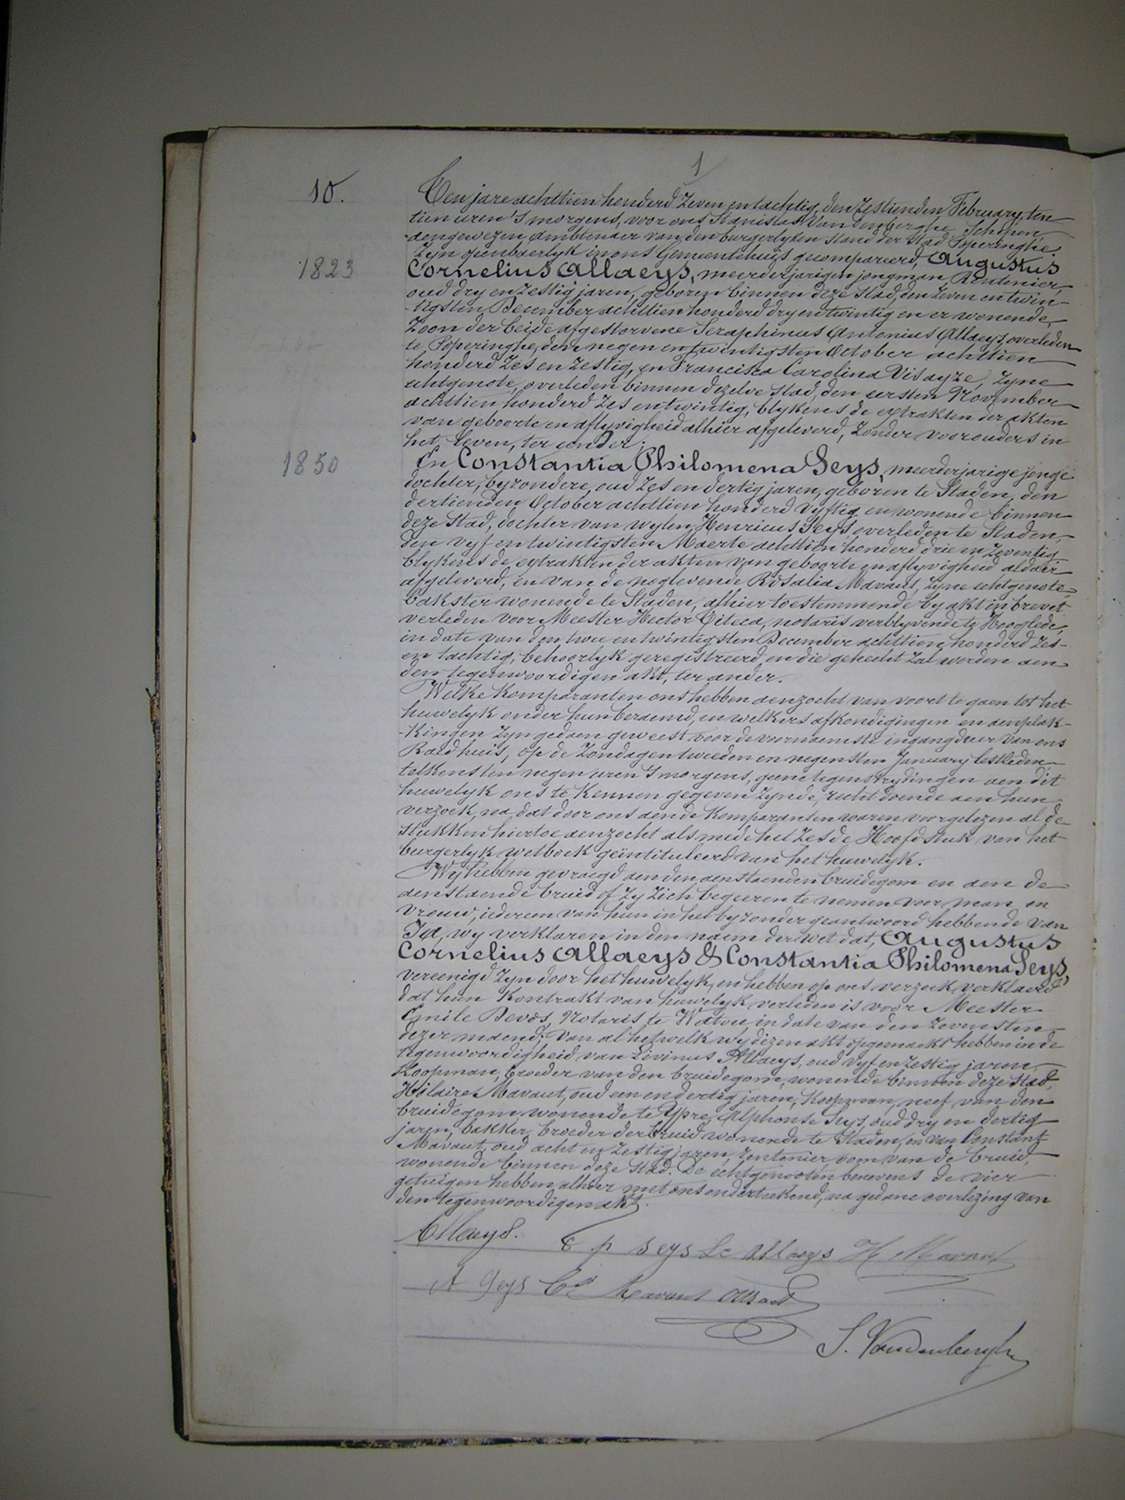 1
10.
Ten jare achttien honderd zeven en tachtig, den zestienden February, ten
tien uren 's morgens, voor ons Stanislas Vandenberghe Schepen,
aengewezen ambtenaer van den burgerlyken stand der Stad Poperinghe
zyn openbaerlyk in ons Gemeentehuis gecompareerd, Augustus
1823
Cornelius Allaeys, meerderjarigen jongman Rentenier,
oud dry en zestig jaren, geboren binnen deze Stad, den zeven en twin-
tigsten December achttien honderd dry en twintig en er wonende,
zoon der beide afgestorvene Seraphinus Antonius Allaeys overleden
te Poperinghe, den negen en twintigsten October achttien
honderd zes en zestig, en Francisca Carolina Visayze, zyne
echtgenote, overleden binnen dezelve Stad, den eersten November
achttien honderd zes en twintig, blykens de extrakten der akten
van geboorte en aflyvigheid alhier afgeleverd, zonder voorouders in
het leven, ter eender;
1850
En Constantia Philomena Seys, meerderjarige jonge
dochter, byzondere, oud zes en dertig jaren, geboren te Staden, den
dertienden October achttien honderd vyftig en wonende binnen
deze Stad, dochter van wylen Henricus Seys overleden te Staden,
den vyf en twintigsten Maerte achttien honderd drie en zeventig
blykens de extrakten der akten van geboorte en aflyvigheid aldaer
afgeleverd, en van de noglevende Rosalia Mavaut, zyne echtgenote,
bakster wonende te Staden, alhier toestemmende by akt in brevet
verleden voor Meester Hector Dileca, notaris verblyvende te Hooglede,
in date van den twee en twintigsten December achttien honderd zes-
en tachtig, behoorlyk geregistreerd en die gehecht zal worden aen
den tegenwoordigen akt, ter ander.
Welke Komparanten ons hebben aenzocht van voort te gaen tot het
huwelyk onder hun beraemd, en welkers afkondigingen en aenplak-
kingen zyn gedaen geweest voor de voornaemste ingangdeur van ons
Raedhuis, op de Zondagen tweeden en negensten January lestleden
telkens ten negen uren 's morgens, geene tegenstrydingen aen dit
huwelyk ons te kennen gegeven zynde, recht doende aen hun
verzoek, na dat door ons aen de Komparanten waren voorgelezen al de
stukken hiertoe aenzocht alsmede het zesde Hoofdstuk van het
burgerlyk wetboek geïntituleerd van het huwelyk.
Wy hebben gevraegd aen den aenstaenden bruidegom en aen de
aenstaende bruid of zy zich begeeren te nemen voor man en
vrouw; iedereen van hun in het byzonder geantwoord hebbende van
Ja, wy verklaren in den naem der wet dat, Augustus
Cornelius Allaeys & Constantia Philomena Seys,
vereenigd zyn door het huwelyk, en hebben op ons verzoek verklaerd
dat hun Kontrakt van huwelyk verleden is voor Meester
Emile Devos, Notaris te Watou, in date van den zevensten
dezer maend; Van al hetwelk wy dezen akt opgemaekt hebben in de
tegenwoordigheid van Livinus Allaeys, oud vyf en zestig jaren,
Koopman, broeder van den bruidegom, wonende binnen deze Stad,
Hilaire Mavaut, oud een en dertig jaren, Koopman, neef van den
bruidegom wonende te Ypre, Alphonse Seys, oud dry en dertig
jaren, bakker, broeder der bruid wonende te Staden, en van Constant
Mavaut, oud acht en zestig jaren, Rentenier oom van de bruid,
wonende binnen deze Stad. De echtgenooten benevens de vier
getuigen hebben alhier met ons onderteekend, na gedane overlezing van
den tegenwoordigen akt.
Allaeys. C p Seys Le Allaeys H Mavaut
A Seys Ct Mavaut
S. Vandenberghe